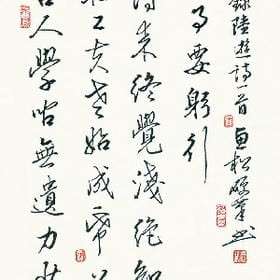 人學問無遺力
工夫老始成帋
得來終覺淺絕知
事要躬行
錄陸遊詩一首